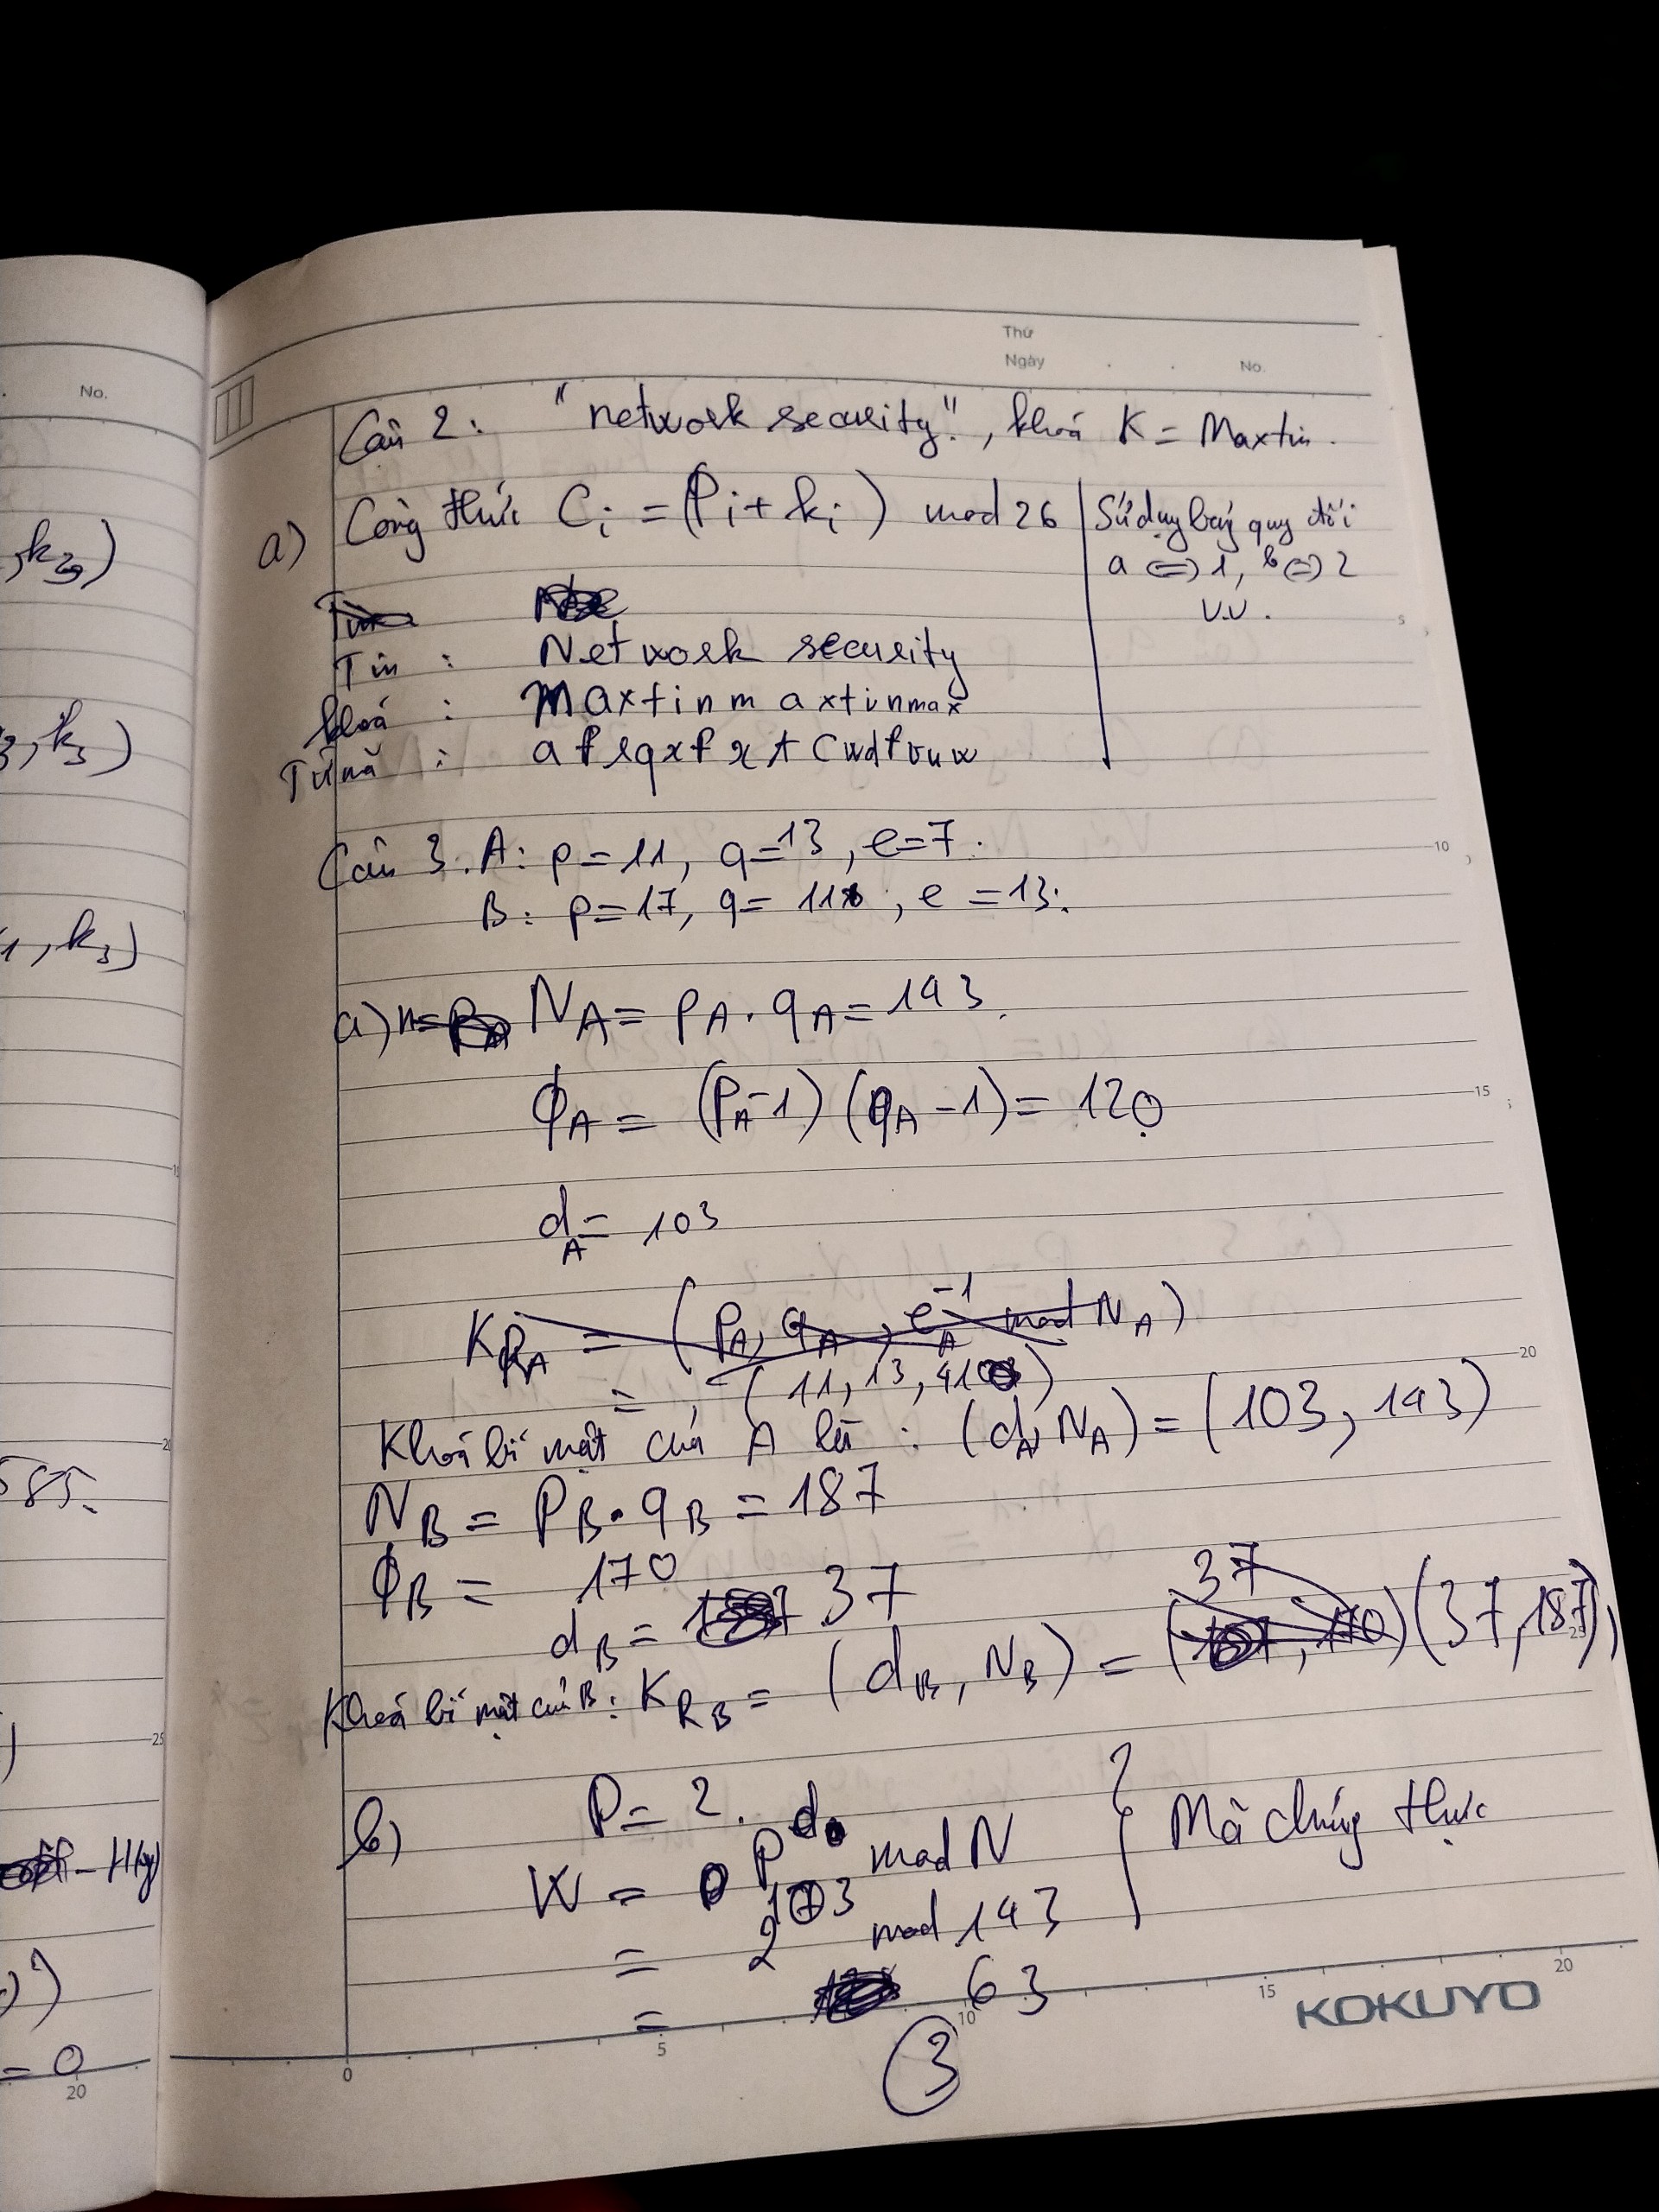 No.
,k3)
3,k3)
1,k3)
585.
- H(y)
= 0
20
25
Thứ
Ngày
No.
Câu 2: "network security", khoá K = Maxtin.
a) Công thức Ci = (Pi + ki) mod 26
Sử dụng bảng quy đổi
a <=> 1, b <=> 2
v.v.
Tin : Network security
khoá : Maxtinm axtinmax
Từ mã :
Câu 3. A: p = 11, q = 13, e = 7.
B: p = 17, q = 11, e = 13.
a) NA = pA . qA = 143.
ϕA = (pA - 1) (qA - 1) = 120
dA = 103
KRA = (pA, qA, eA^-1 mod NA)
= (11, 13,
Khoá bí mật của A là : (dA, NA) = (103, 143)
NB = PB . qB = 187
ϕB = 170
dB = 37
37
Khoá bí mật của B: KRB = (dB, NB) = (37, 187)
b) P = 2.
W = P^d mod N
= 2^103 mod 143
= 63
Mã chứng thực
10
15
20
0
5
10
15
20
KOKUYO
3